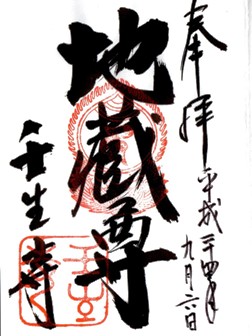 奉拝
平成二十四年
九月六日
地蔵尊
壬生寺